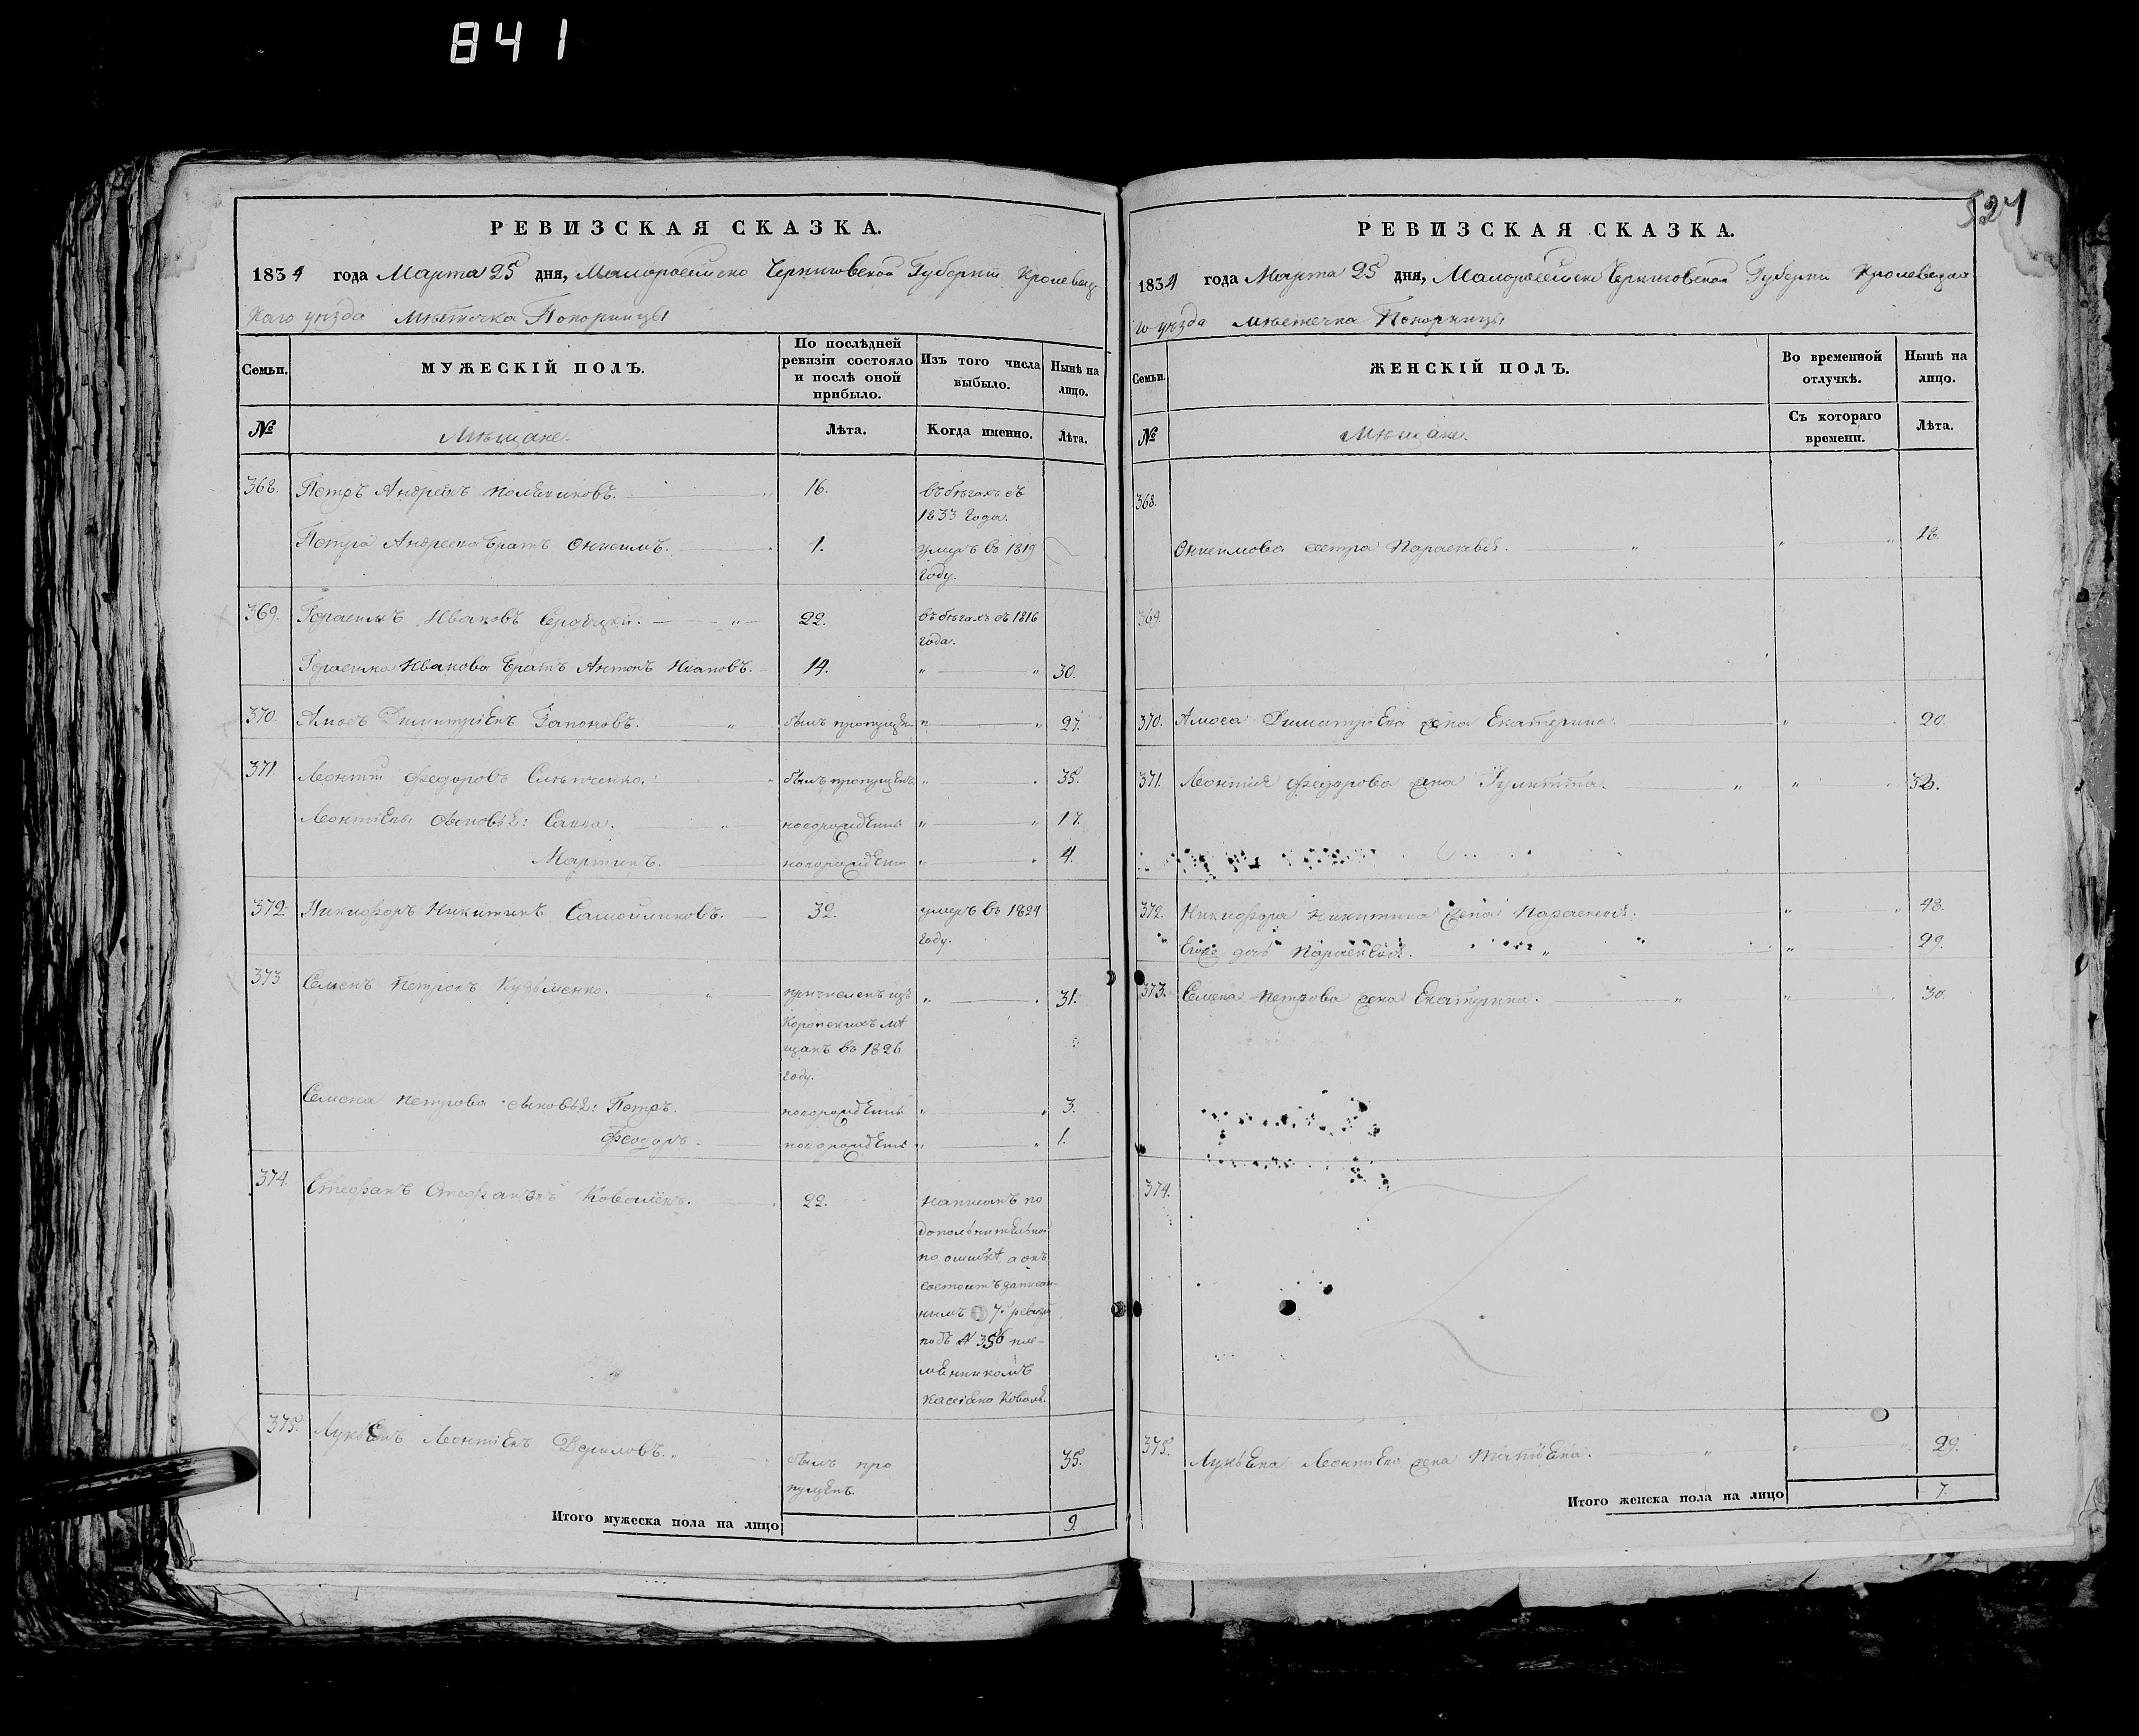 841
524
РЕВИЗСКАЯ СКАЗКА.
1834 года Марта 25 дня, Малороссійско Черниговской Губерніи Кролевец
каго уезда мѣстечка Понорницы
Семьи.
МУЖЕСКІЙ ПОЛЪ.
По послѣдней ревизіи состояло и послѣ оной прибыло.
Изъ того числа выбыло.
Нынѣ на лицо.
№
Мѣщане.
Лѣта.
Когда именно.
Лѣта.
368. Петръ Андреевъ 16. въ бѣгахъ съ
1833 года.
Петра Андреева братъ Онисимъ. 1. умеръ въ 1819
году.
369. Герасимъ Ивановъ 22. въ бѣгахъ съ 1816
года.
Герасима Иванова братъ Антонъ Ивановъ. 14. " " 30.
370. Амосъ Димитріевъ Гапоновъ. " былъ пропущен " " 27.
371. Леонтій Федоровъ Слѣпченко. " былъ пропущенъ " " 35.
Леонтіевы сыновья: Савва. " новорожденъ " " 17.
Мартинъ. новорожден " " 4.
372. Никифоръ Никитинъ Самойликовъ. 32. умеръ въ 1824
году.
373. Семенъ Петровъ Кузьменко. " причисленъ изъ " " 31.
Коропскихъ мѣ
щанъ въ 1826
году.
Семена Петрова сыновья: Петръ. новорожденъ " " 3.
Феодоръ. новорожденъ " " 1.
374. Стефанъ Стефановъ 22. Написанъ по
дополнительной
по ошибкѣ, а онъ
состоитъ записан-
нымъ 7й ревизіи
подъ № 356 пле-
мянникомъ
Кассіана Коваля.
375. Лукьянъ Леонтіевъ Даниловъ. былъ про 35.
пущенъ.
Итого мужеска пола на лицо 9.
РЕВИЗСКАЯ СКАЗКА.
1834 года Марта 25 дня, Малороссійско Черниговской Губерніи Кролевецка
го уезда мѣстечка Понорницы
Семьи.
ЖЕНСКІЙ ПОЛЪ.
Во временной отлучкѣ.
Нынѣ на лицо.
№
Мѣщане.
Съ котораго времени.
Лѣта.
368.
Онисимова сестра Параскевія. " " " 18.
369.
370. Амоса Димитріева жена Екатерина. " 20.
371. Леонтія Федорова жена Іулитта. " " " 32.
372. Никифора Никитина жена Параскевія. " " 48.
Его дочь Параскевія. " " 29.
373. Семена Петрова жена Екатерина. " " 30.
374.
375. Лукьяна Леонтіева жена Татьяна. " " " 29.
Итого женска пола на лицо 7.